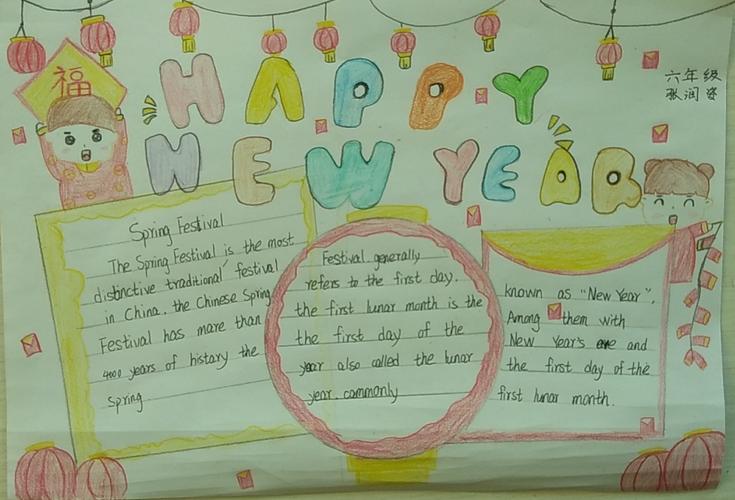 福
HAPPY
NEW YEAR
六年级
张润
Spring Festival
The Spring Festival is the most
distinctive traditional festival
in China. the Chinese Spring
Festival has more than
4000 years of histary the
Spring
Festival generally
refers to the first day.
the first lunar month is the
the first day of the
year also called the lunar
year. commonly
known as "New Year".
Among them with
New Year's eve and
the first day of the
first lunar month.